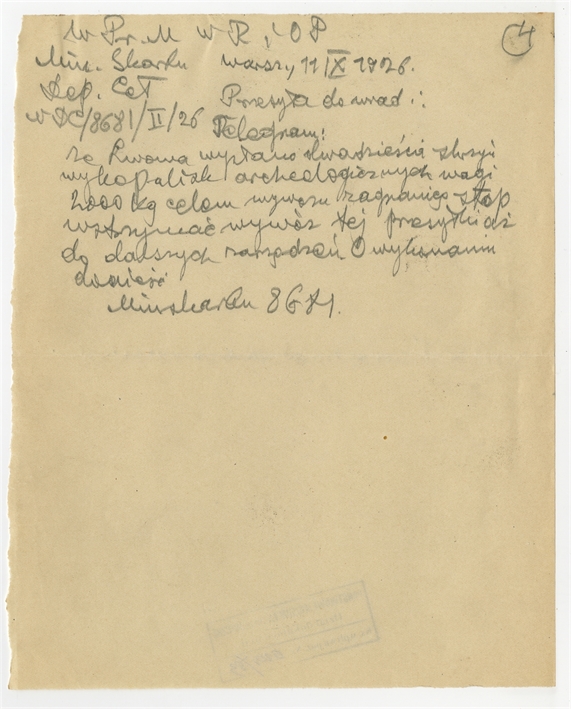 w Pr. M W R i OP
④
Min. Skarbu warsz, 11 IX 1926.
Dep. Ceł Przesyła do wiad.:
w DC/8681/II/26 Telegram:
ze Lwowa wysłano dwadzieścia skrzyń
wykopalisk archeologicznych wagi
2000 kg celem wywozu zagranicę stop
wstrzymać wywóz tej przesyłki aż
do dalszych zarządzeń O wykonaniu
donieść
Minskarbu 8681.